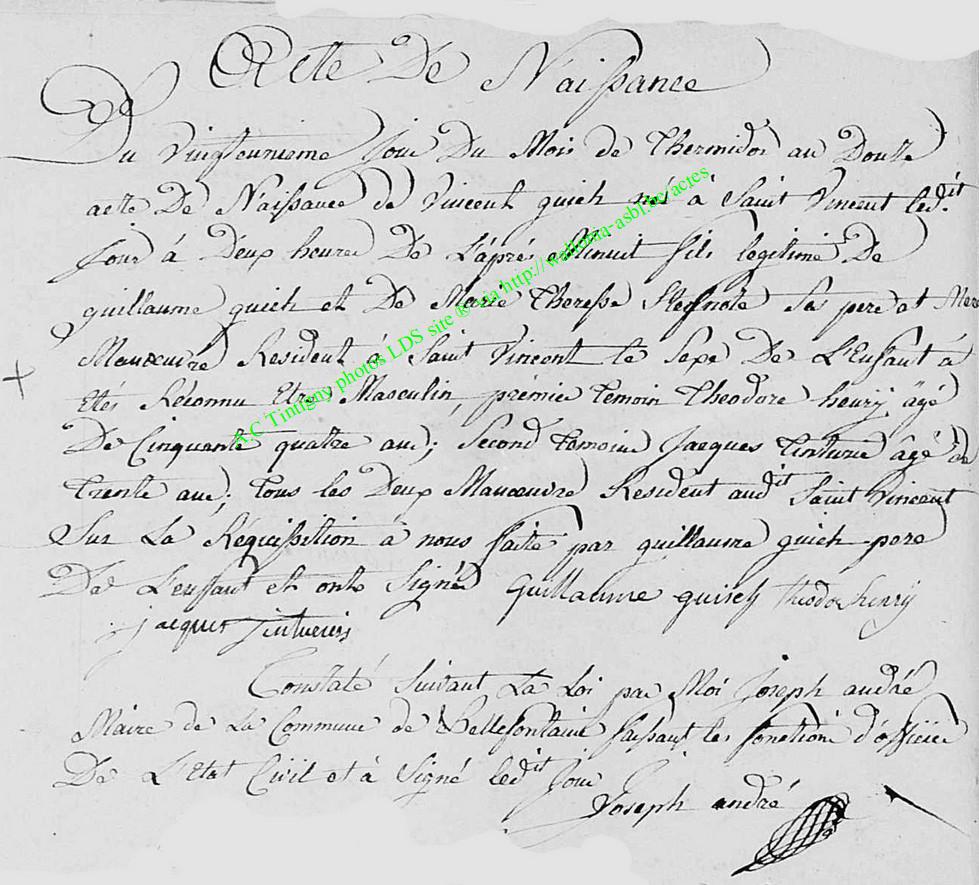 Acte De Naissance
Du Vingteunieme Jour Du Mois de Thermidor an Douze
acte De Naissance de Vincent guich né à Saint Vincent ledit
Jour à Deux heures De L'aprés Minuit fils legitime De
guillaume guich et De Marie Theresse Steqnote Ses pere et Mere
Manœuvre Resident à Saint Vincent le Sexe De L'Enfant à
Etés Réconnu Etre Masculin, prémier temoin Theodore henrÿ âgé
De Cinquante quatre ans; Second temoin Jacques tinturie âgé de
Trente ans; tous les Deux Manœuvre Resident audit Saint Vincent
Sur La Réquissition à nous faite par guillaume guich pere
De L'enffant et onts Signé Guillaume quisch theodor henrÿ
jacques tintueris
Constaté Suivant La Loi par Moi Joseph andré
Maire de La Commune de Bellefontaine faisant les fonctions d'officier
De L'Etat Civil et à Signé ledit Jour
Joseph andré
A.C Tintigny photos LDS site ® via http://wallonia-asbl.be/actes